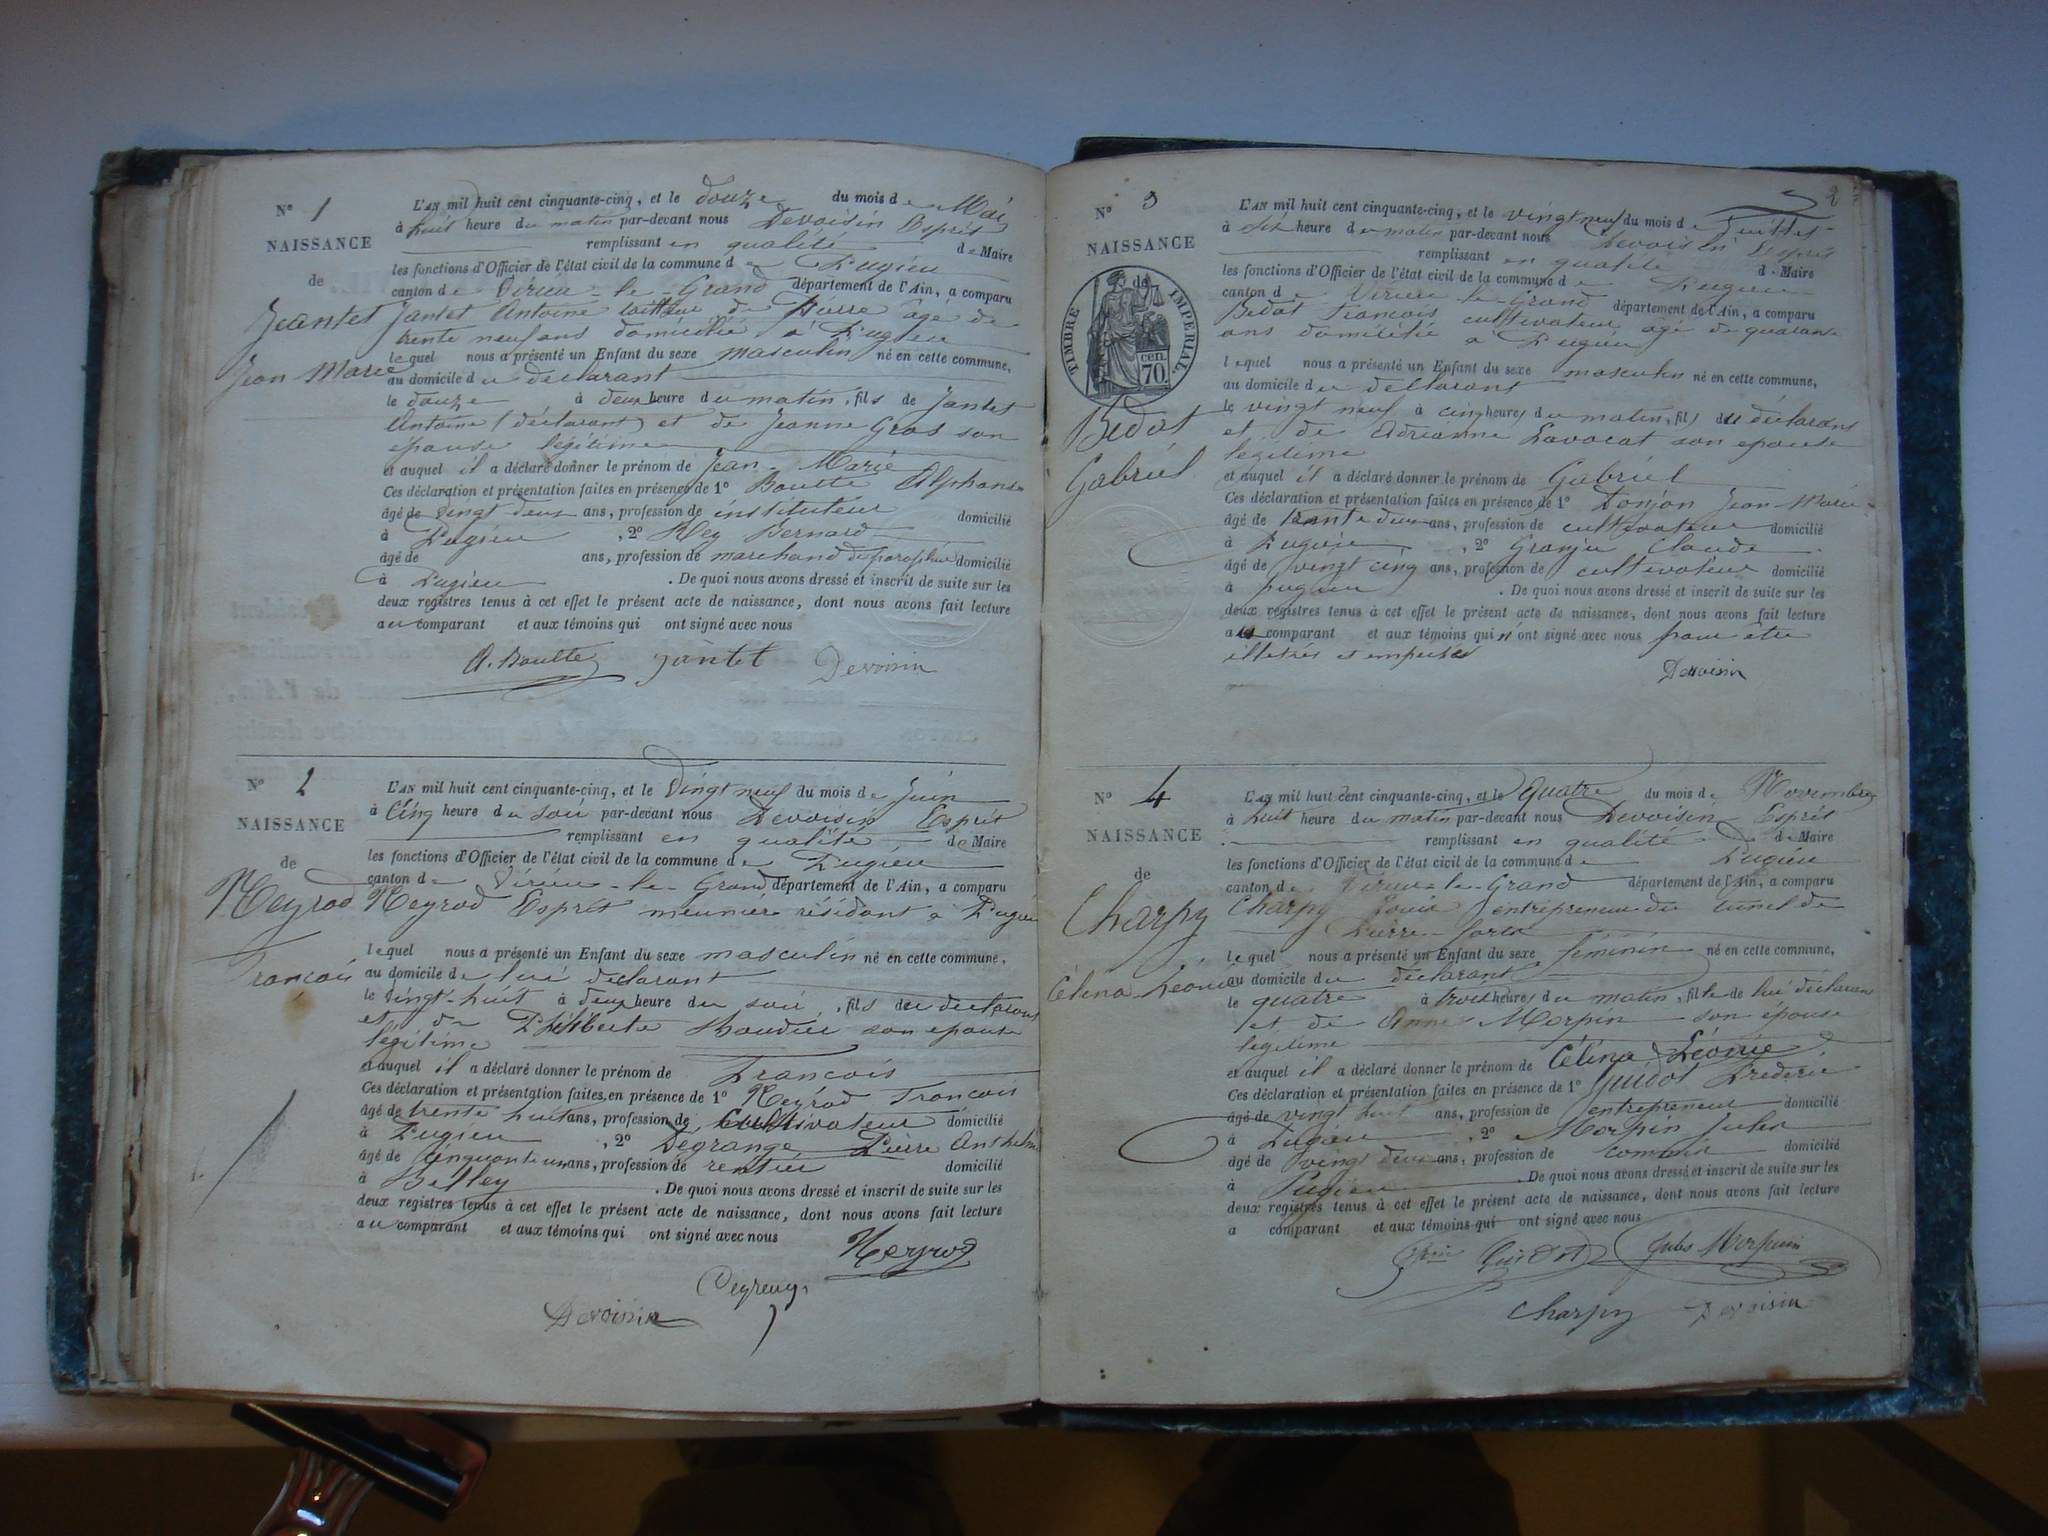 N° 1
NAISSANCE
de
Jeantet
Jean Marie
L'AN mil huit cent cinquante-cinq, et le douze du mois de Mai
à huit heure du matin par-devant nous Devoisin Esprit
remplissant en qualité de Maire
les fonctions d'Officier de l'état civil de la commune de Pugieu
canton de Virieu-le-Grand département de l'Ain, a comparu
Jantet Antoine de Pierre âgé de
trente neuf ans domicilié à Pugieu
lequel nous a présenté un Enfant du sexe masculin né en cette commune,
au domicile du déclarant
le douze à deux heure du matin, fils de Jantet
Antoine (déclarant) et de Jeanne Gros son
épouse légitime
et auquel il a déclaré donner le prénom de Jean-Marie
Ces déclaration et présentation faites en présence de 1° Boutte Alphonse
âgé de vingt deux ans, profession de instituteur domicilié
à Pugieu, 2° Rey Bernard
âgé de ans, profession de marchand de domicilié
à Pugieu. De quoi nous avons dressé et inscrit de suite sur les
deux registres tenus à cet effet le présent acte de naissance, dont nous avons fait lecture
au comparant et aux témoins qui ont signé avec nous
A. Boutte Jantet Devoisin
N° 2
NAISSANCE
de
Neyrod
Francois
L'AN mil huit cent cinquante-cinq, et le vingt neuf du mois de Juin
à cinq heure du soir par-devant nous Devoisin Esprit
remplissant en qualité de Maire
les fonctions d'Officier de l'état civil de la commune de Pugieu
canton de Virieu-le-Grand département de l'Ain, a comparu
Neyrod Esprit meunier résidant à Pugieu
lequel nous a présenté un Enfant du sexe masculin né en cette commune,
au domicile de lui déclarant
le vingt-huit à deux heure du soir, fils du déclarant
et de Philiberte son épouse
légitime
et auquel il a déclaré donner le prénom de Francois
Ces déclaration et présentation faites en présence de 1° Neyrod Francois
âgé de trente huit ans, profession de cultivateur domicilié
à Pugieu, 2° Degrange Pierre Anthelme
âgé de cinquante un ans, profession de rentier domicilié
à Belley. De quoi nous avons dressé et inscrit de suite sur les
deux registres tenus à cet effet le présent acte de naissance, dont nous avons fait lecture
au comparant et aux témoins qui ont signé avec nous
Neyrod
Devoisin
2
N° 3
NAISSANCE
de
TIMBRE IMPERIAL
70 cen.
Bedat
Gabriel
L'AN mil huit cent cinquante-cinq, et le vingt neuf du mois de Juillet
à six heure du matin par-devant nous Devoisin Esprit
remplissant en qualité de Maire
les fonctions d'Officier de l'état civil de la commune de Pugieu
canton de Virieu-le-Grand département de l'Ain, a comparu
Bedat Francois cultivateur âgé de quarante
ans domicilié à Pugieu
lequel nous a présenté un Enfant du sexe masculin né en cette commune,
au domicile du déclarant
le vingt neuf à cinq heures du matin, fils du déclarant
et de Adrianne Lavocat son épouse
légitime
et auquel il a déclaré donner le prénom de Gabriel
Ces déclaration et présentation faites en présence de 1° Donjon Jean-Marie
âgé de trente deux ans, profession de cultivateur domicilié
à Pugieu, 2° Granju Claude
âgé de vingt cinq ans, profession de cultivateur domicilié
à Pugieu. De quoi nous avons dressé et inscrit de suite sur les
deux registres tenus à cet effet le présent acte de naissance, dont nous avons fait lecture
au comparant et aux témoins qui n'ont signé avec nous pour être
illetrés
Devoisin
N° 4
NAISSANCE
de
Charpy
Célina Léonie
L'AN mil huit cent cinquante-cinq, et le quatre du mois de Novembre
à huit heure du matin par-devant nous Devoisin Esprit
remplissant en qualité de Maire
les fonctions d'Officier de l'état civil de la commune de Pugieu
canton de Virieu-le-Grand département de l'Ain, a comparu
Charpy Louis entrepreneur du tunel de
Pierre-
lequel nous a présenté un Enfant du sexe féminin né en cette commune,
au domicile du déclarant
le quatre à trois heures du matin, fille de lui déclarant
et de Anne Morpin son épouse
légitime
et auquel il a déclaré donner le prénom de Célina Léonie
Ces déclaration et présentation faites en présence de 1° Guidot Frederic
âgé de vingt huit ans, profession de entrepreneur domicilié
à Pugieu, 2° Morpin Jules
âgé de vingt deux ans, profession de commis domicilié
à Pugieu. De quoi nous avons dressé et inscrit de suite sur les
deux registres tenus à cet effet le présent acte de naissance, dont nous avons fait lecture
a comparant et aux témoins qui ont signé avec nous
Guidot Jules Morpin
Charpy Devoisin